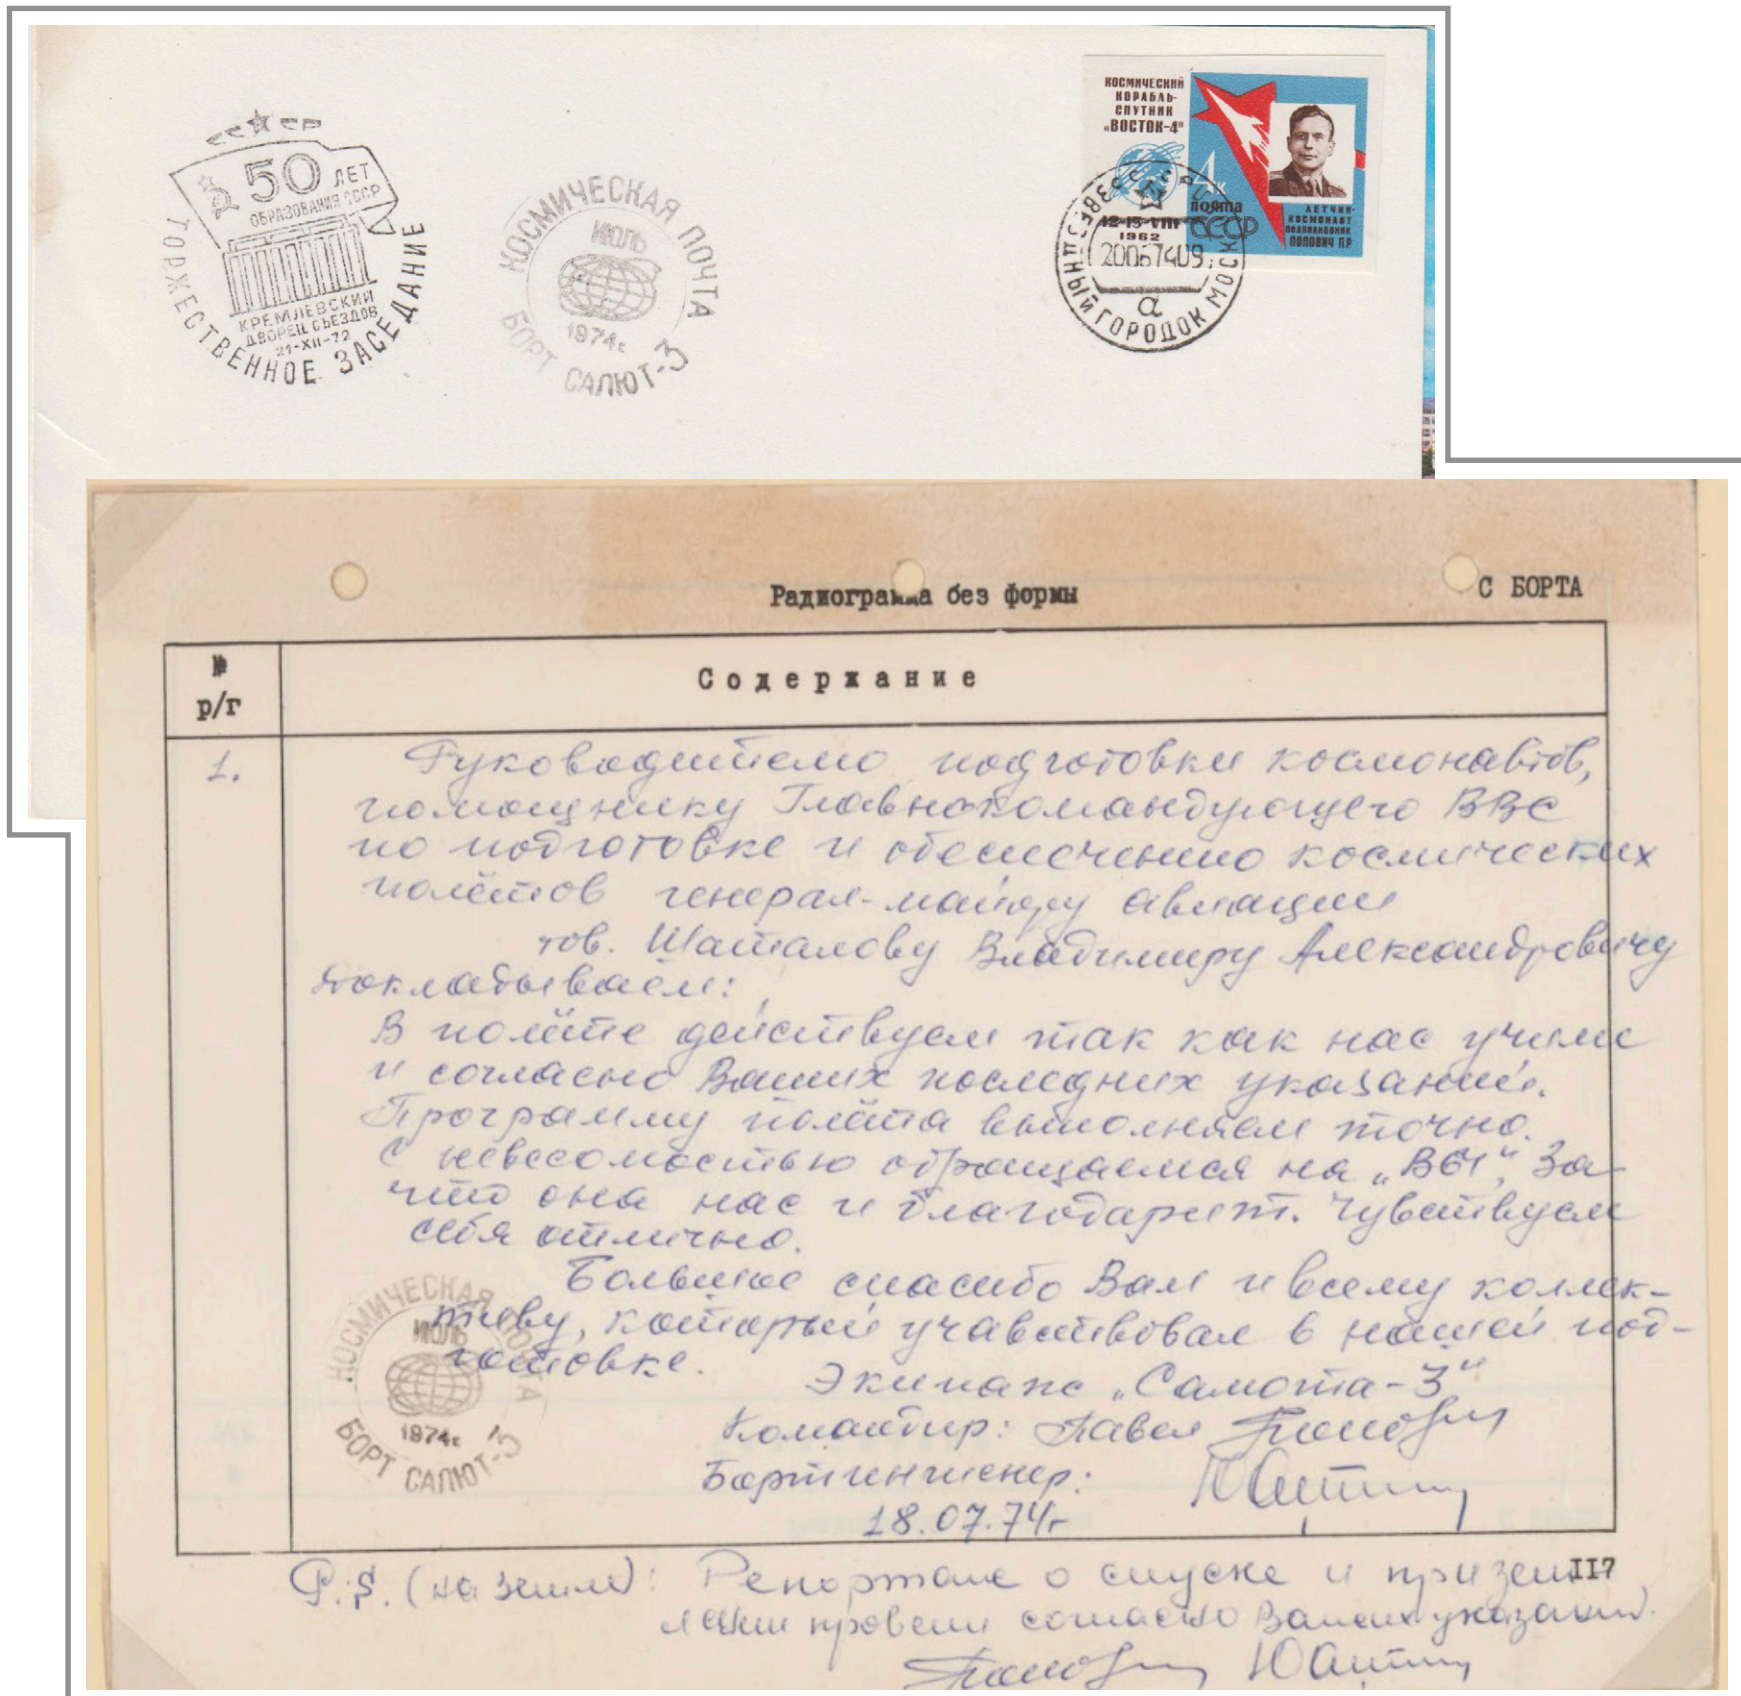 СССР
50 ЛЕТ
ОБРАЗОВАНИЯ СССР
КРЕМЛЕВСКИЙ
ДВОРЕЦ СЪЕЗДОВ
21-XII-72
ТОРЖЕСТВЕННОЕ ЗАСЕДАНИЕ
КОСМИЧЕСКАЯ ПОЧТА
ИЮЛЬ
1974г.
БОРТ САЛЮТ-3
КОСМИЧЕСКИЙ
КОРАБЛЬ-
СПУТНИК
„ВОСТОК-4"
4к
ПОЧТА
СССР
12-15-VIII
1962
ЛЕТЧИК-
КОСМОНАВТ
ПОДПОЛКОВНИК
ПОПОВИЧ П.Р.
ЗВЕЗДНЫЙ ГОРОДОК МОСК
а
Радиограмма без формы
С БОРТА
№
р/г
Содержание
1.
Руководителю подготовки космонавтов,
помощнику Главнокомандующего ВВС
по подготовке и обеспечению космических
полётов генерал-майору авиации
тов. Шаталову Владимиру Александровичу
Докладываем:
В полёте действуем так как нас учили
и согласно Ваших последних указаний.
Программу полёта выполняем точно.
С невесомостью обращаемся на „ВЫ", За
что она нас и благодарит. Чувствуем
себя отлично.
Большое спасибо Вам и всему коллек-
тиву, который учавствовал в нашей под-
готовке.
Экипаж „Салюта-3"
Командир: Павел Попович
Бортинженер:
18.07.74г
КОСМИЧЕСКАЯ ПОЧТА
ИЮЛЬ
1974г.
БОРТ САЛЮТ-3
117
P.S. (на земле): Репортаж о спуске и призем
лении провели согласно Ваших указаний.
Попович